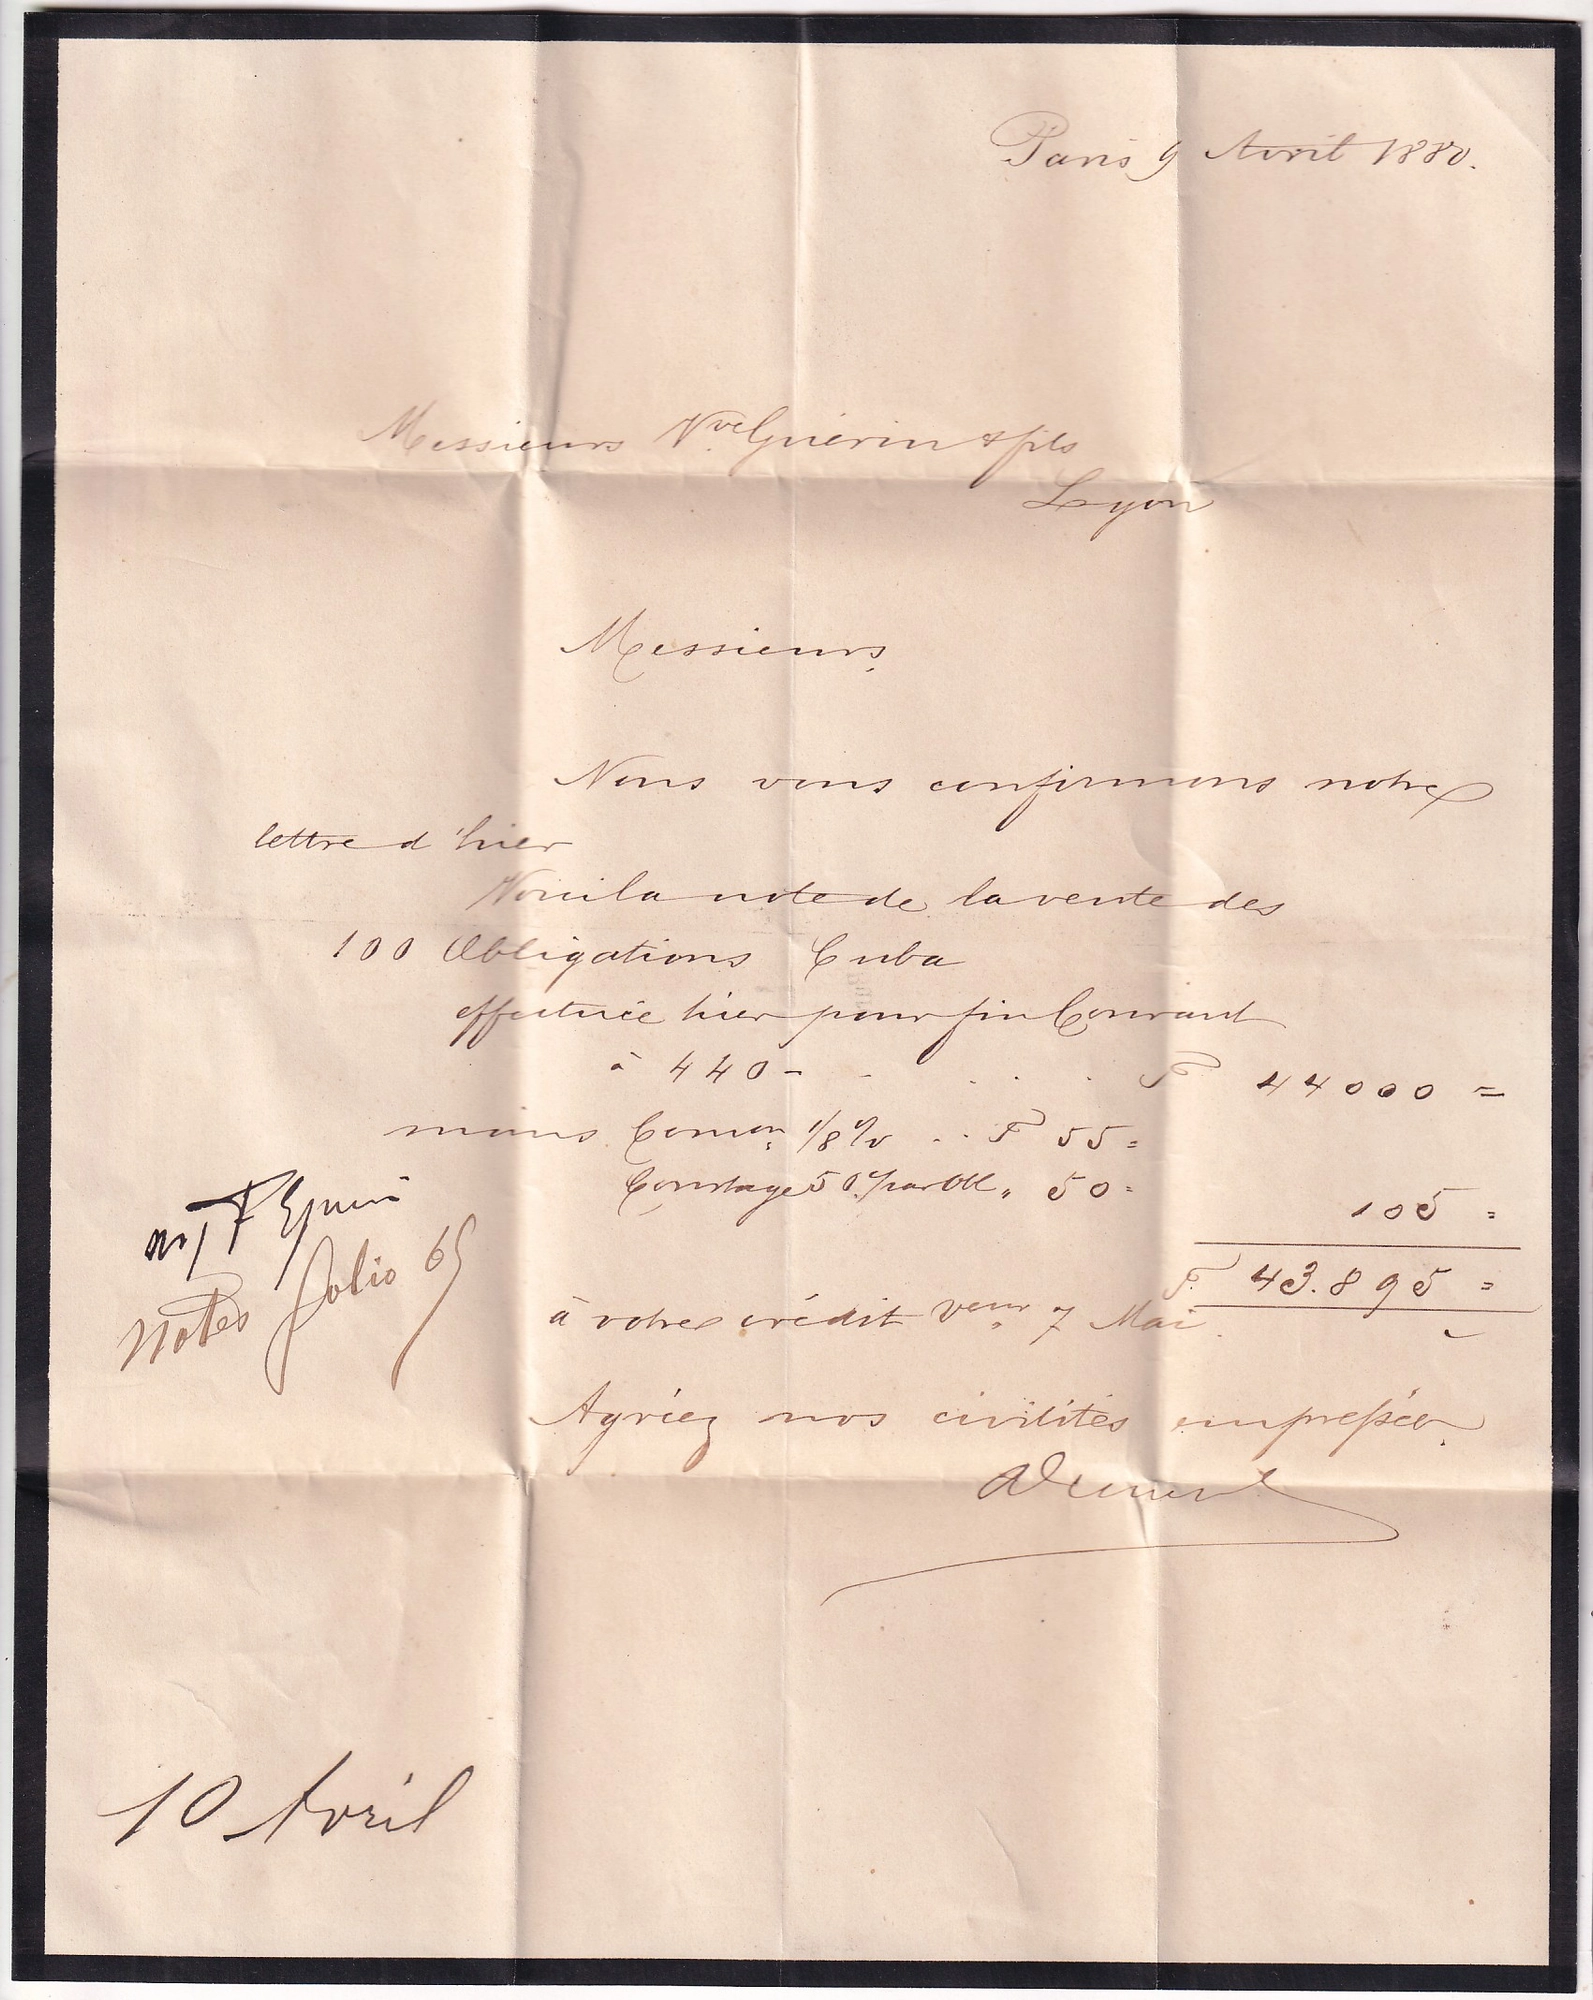 Paris 9 Avril 1880.
Messieurs Vve Guérin & fils
Lyon
Messieurs,
Nous vous confirmons notre
lettre d'hier
Voici la note de la vente des
100 Obligations Cuba
effectuée hier pour fin Courant
à 440 - - . . . F 44000 =
moins Comon 1/8 % .. F 55 =
Courtage 50 c/ par Obl. „ 50 =
105 =
F. 43.895 =
à votre crédit Valeur 7 Mai.
Agréez nos civilités empressées.
Notes folio 65
10 Avril